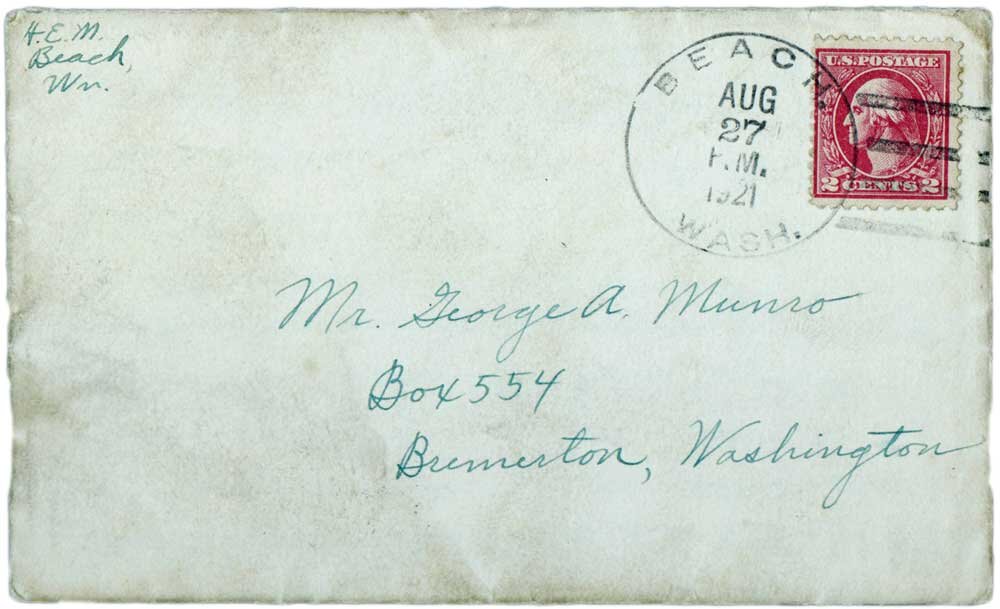 H.E.M.
Beach,
Wn.
BEACH.
AUG
27
P.M.
1921
WASH.
U.S. POSTAGE
2 CENTS 2
Mr. George A. Munro
Box 554
Bremerton, Washington